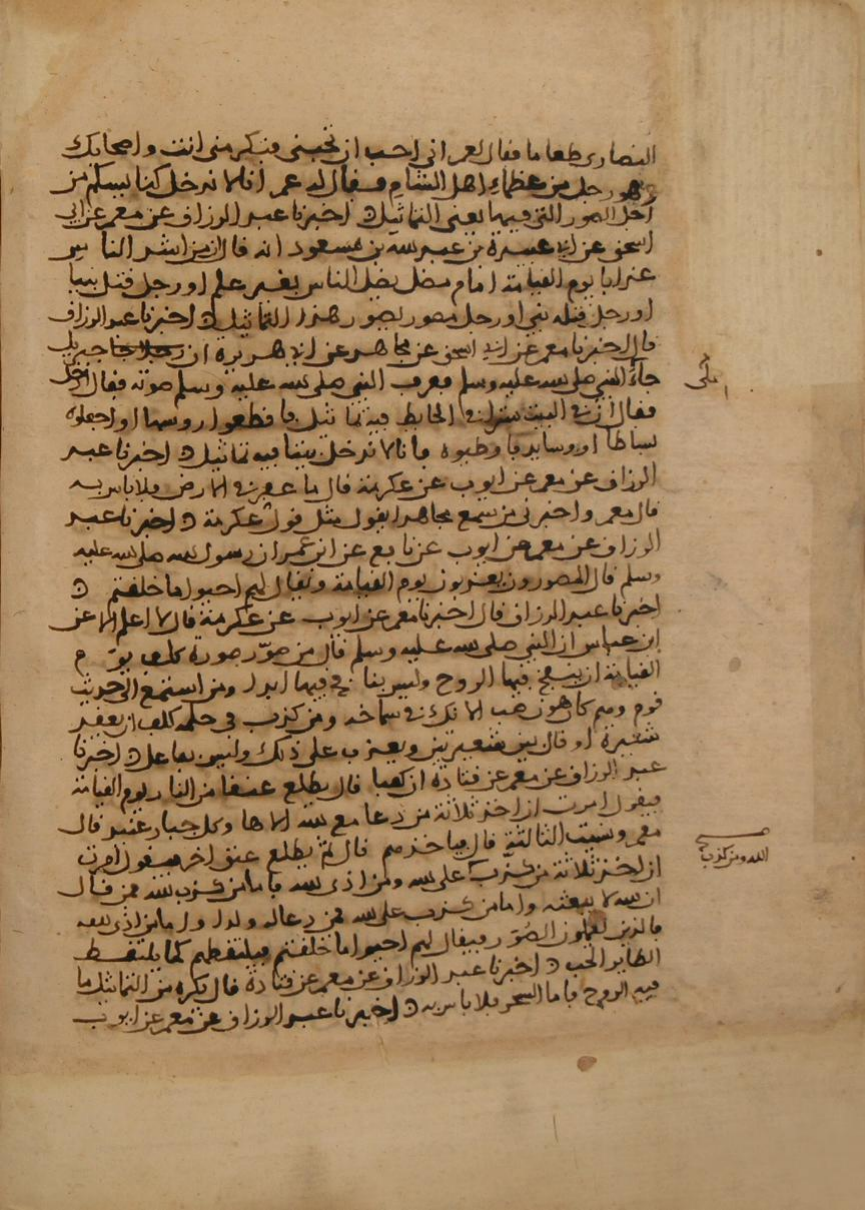 النصارى طعاما فقال لعمر اني احب ان تجيني فتكرمني انت واصحابك
وهو رجل من عظماء اهل الشام فقال له عمر انا لا ندخل كنايسكم من
اجل الصور التي فيها يعني التماثيل اخبرنا عبد الرزاق عن معمر عن ابي
اسحق عن ابي عبيدة بن عبد الله بن مسعود انه قال ان من اشد الناس
عذابا يوم القيامة امام مضل يضل الناس بغير علم او رجل قتل نبيا
او رجل قتله نبي او رجل مصور يصور هذا التماثيل اخبرنا عبد الرزاق
قال اخبرنا معمر عن ابي اسحق عن مجاهد عن ابي هريرة ان جبريل
جاء النبي صلى الله عليه وسلم فعرف النبي صلى الله عليه وسلم صوته فقال ادخل
فقال ان في البيت سترا في الحايط فيه تماثيل فاقطعوا روسها او اجعلوه
بساطا او وسايد فاوطوه فانا لا ندخل بيتا فيه تماثيل اخبرنا عبد
الرزاق عن معمر عن ايوب عن عكرمة قال ما عفر في الارض فلا باس به
قال معمر واخبرني من سمع مجاهدا يقول مثل قول عكرمة اخبرنا عبد
الرزاق عن معمر عن ايوب عن نافع عن ابن عمر ان رسول الله صلى الله عليه
وسلم قال المصورون يعذبون يوم القيامة ويقال لهم احيوا ما خلقتم
اخبرنا عبد الرزاق قال اخبرنا معمر عن ايوب عن عكرمة قال لا اعلم الا عن
ابن عباس ان النبي صلى الله عليه وسلم قال من صور صورة كلف يوم
القيامة ان ينفخ فيها الروح وليس بنافخ فيها ابدا ومن استمع الى حديث
قوم وهم كارهون صب الانك في سماخه ومن كذب في حلمه كلف ان يعقد
شعيرة او قال بين شعيرتين ويعذب على ذلك وليس بفاعل اخبرنا
عبد الرزاق عن معمر عن قتادة ان كعبا قال يطلع عنقا من النار يوم القيامة
فيقول امرت ان اخذ ثلاثة من دعا مع الله الاها وكل جبار عنيد قال
معمر ونسيت الثالثة قال فياخذهم قال ثم يطلع عنق اخر فيقول امرت
ان اخذ ثلاثة من كذب على الله ومن اذى الله فاما من كذب الله فمن قال
ان الله لا يبعثه واما من كذب على الله فمن دعا له ولدا واما من اذى الله
فالذين يعملون الصور فيقال لهم احيوا ما خلقتم فيلتقطهم كما يلتقط
الطاير الحب اخبرنا عبد الرزاق عن معمر عن قتادة قال يكره من التماثيل ما
فيه الروح فاما الشجر فلا باس به اخبرنا عبد الرزاق عن معمر عن ايوب
الله ومن كذب